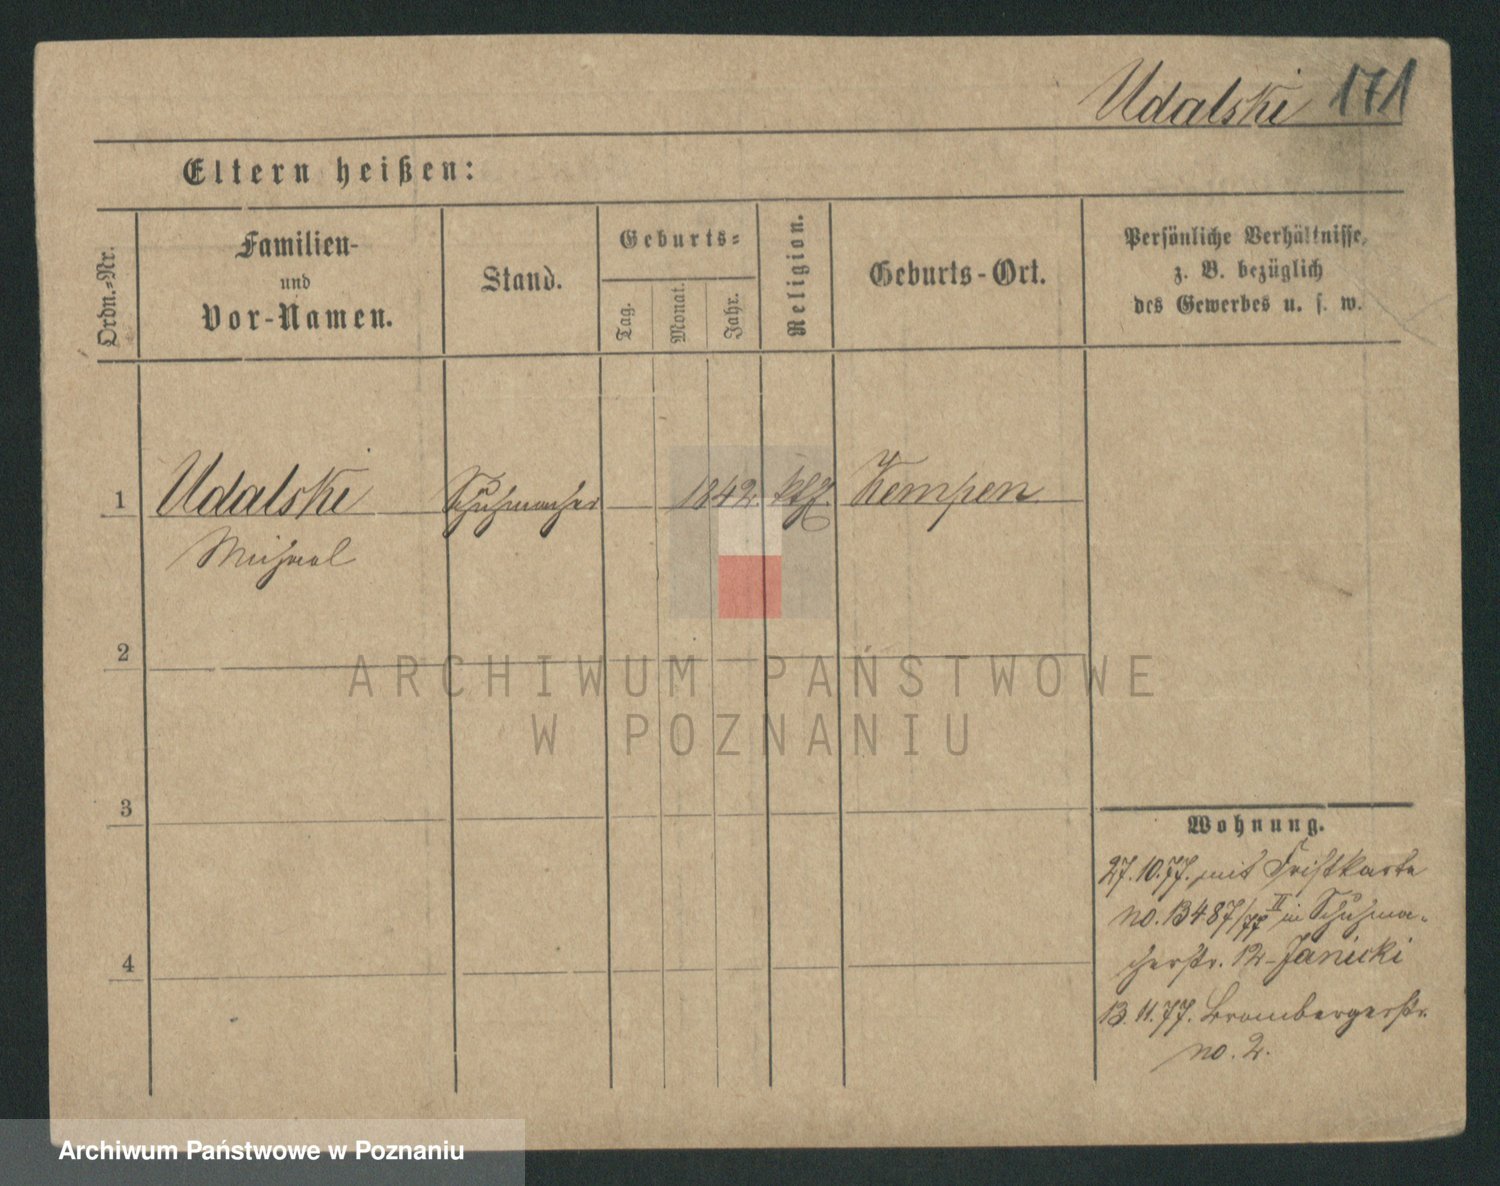 Udalski 171
Eltern heißen:
Ordn.-Nr.
Familien-
und
Vor-Namen.
Stand.
Geburts-
Tag.
Monat.
Jahr.
Religion.
Geburts-Ort.
Persönliche Verhältnisse,
z. B. bezüglich
des Gewerbes u. s. w.
1 Udalski Schuhmacher 1842. kth. Kempen
Michael
2
3
4
Wohnung.
27.10.77. mit Fristkarte
no. 13487/77 II in Schuhma-
cherstr. 12 Janicki
13.11.77. Brombergerstr.
no. 2.
ARCHIWUM PAŃSTWOWE
W POZNANIU
Archiwum Państwowe w Poznaniu